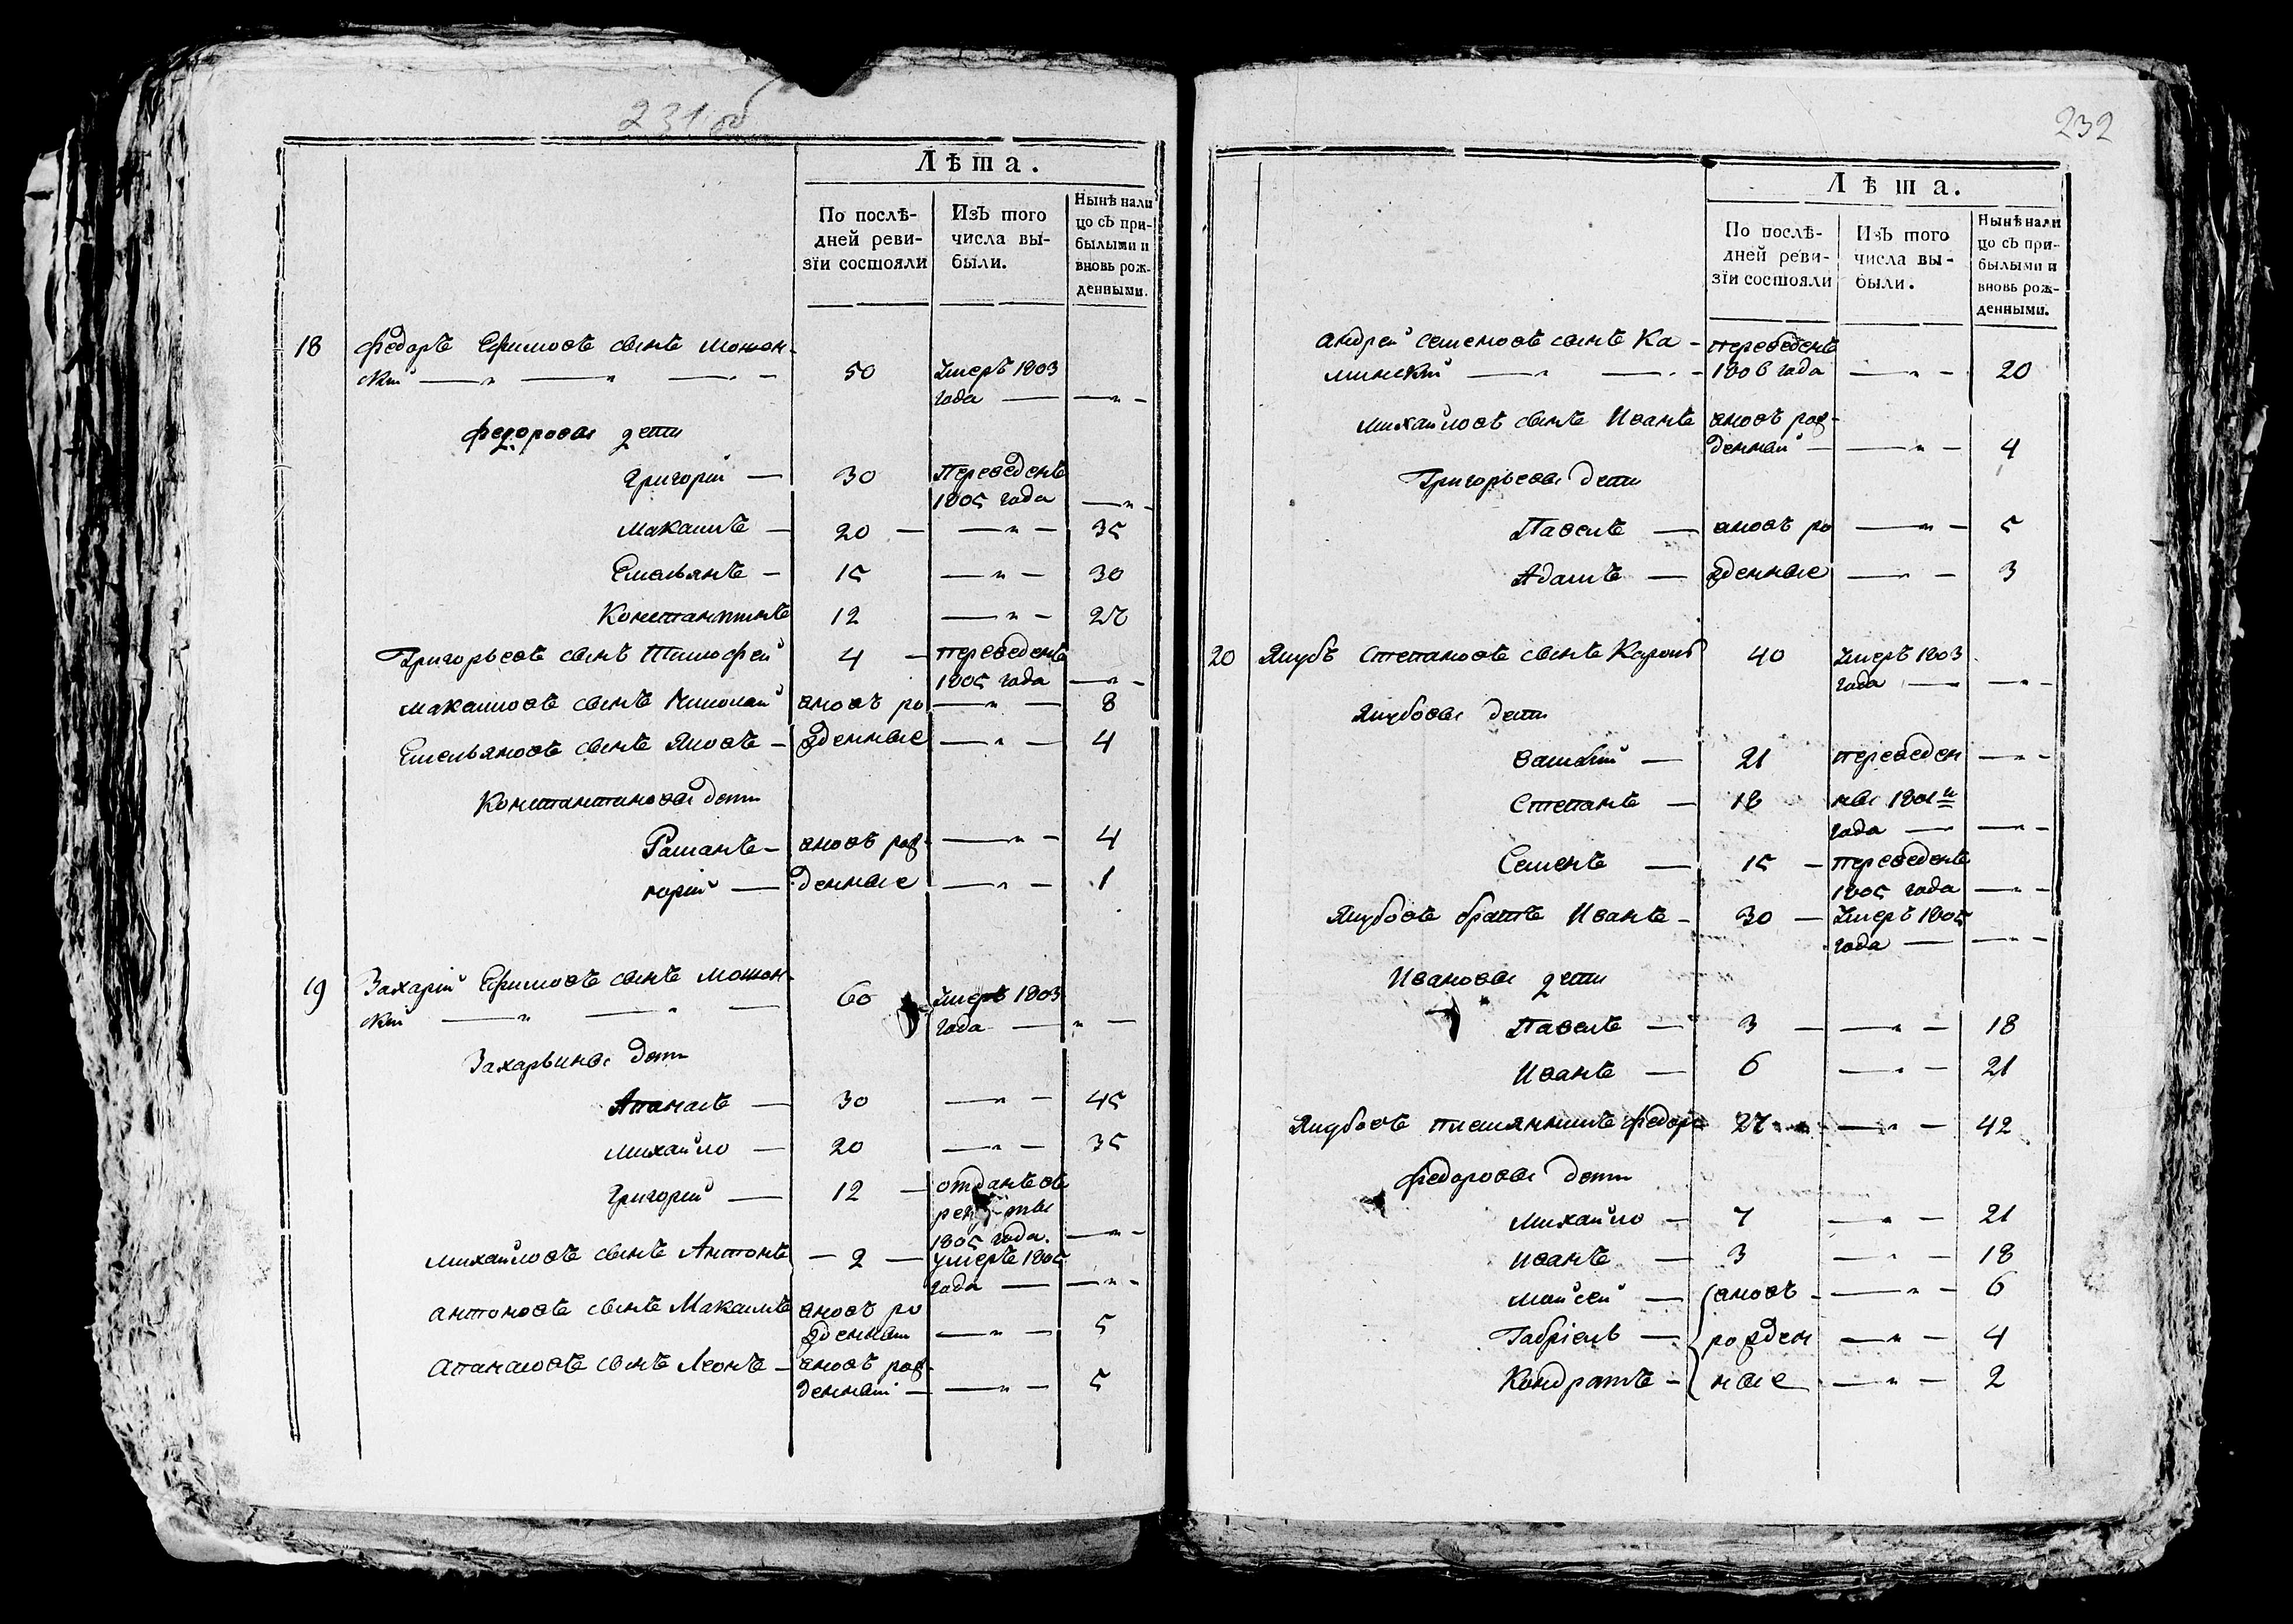 231 об
Лѣта.
По послѣ-
дней реви-
зїи состояли
Изъ того
числа вы-
были.
Нынѣ нали
цо съ при-
былыми и
вновь рож-
денными.
18 Федоръ Ефимовъ сынъ Можон-
скій — „ — „ — „ — 50 Умеръ 1803
года — — „ —
Федоровы дети
Григорій — 30 Переведенъ
1805 года — „ —
Максимъ — 20 — — „ — 35
Емельянъ — 15 — „ — 30
Константинъ 12 — „ — 27
Григорьевъ сынъ Тимофей 4 — переведенъ
1805 года — „ —
Максимовъ сынъ Николай вновь ро — „ — 8
Емельяновъ сынъ Яковъ — жденные — „ — 4
Константиновы дети
Романъ — вновь рож- — „ — 4
Юрій — денные — „ — 1
19 Захарій Ефимовъ сынъ Можон-
скій — „ — „ — 60 Умеръ 1803
года — „ —
Захарьины дети
Апанасъ — 30 — „ — 45
Михайло — 20 — „ — 35
Григорій — 12 — отданъ въ
рекруты
1805 года. — „ —
Михайловъ сынъ Антонъ — 2 — умеръ 1805
года — — „ —
Антоновъ сынъ Максимъ вновь ро
жденный — „ — 5
Апанасовъ сынъ Леонъ — вновь рож-
денный — — „ — 5
232
Лѣта.
По послѣ-
дней реви-
зїи состояли
Изъ того
числа вы-
были.
Нынѣ нали
цо съ при-
былыми и
вновь рож-
денными.
Андрей Семеновъ сынъ Ка- переведенъ
минскій — „ — „ — 1806 года — „ — 20
Михайловъ сынъ Иванъ вновь рож-
денный — — „ — 4
Григорьевы дети
Павелъ — вновь ро — „ — 5
Адамъ — жденные — „ — 3
20 Якубъ Степановъ сынъ 40 Умеръ 1803
года — — „ —
Якубовы дети
Василій — 21 переведен — „ —
Степанъ — 18 ны 1801г
года — — „ —
Семенъ — 15 — переведенъ
1805 года — „ —
Якубовъ братъ Иванъ — 30 — Умеръ 1805
года — — „ —
Ивановы дети
Павелъ — 3 — — „ — 18
Иванъ — 6 — „ — 21
Якубовъ племянникъ Федоръ 27 — „ — 42
Федоровы дети
Михайло — 7 — „ — 21
Иванъ — 3 — „ — 18
Мойсей — вновь — „ — 6
Габріель — рожден — „ — 4
Кондратъ — ные — „ — 2